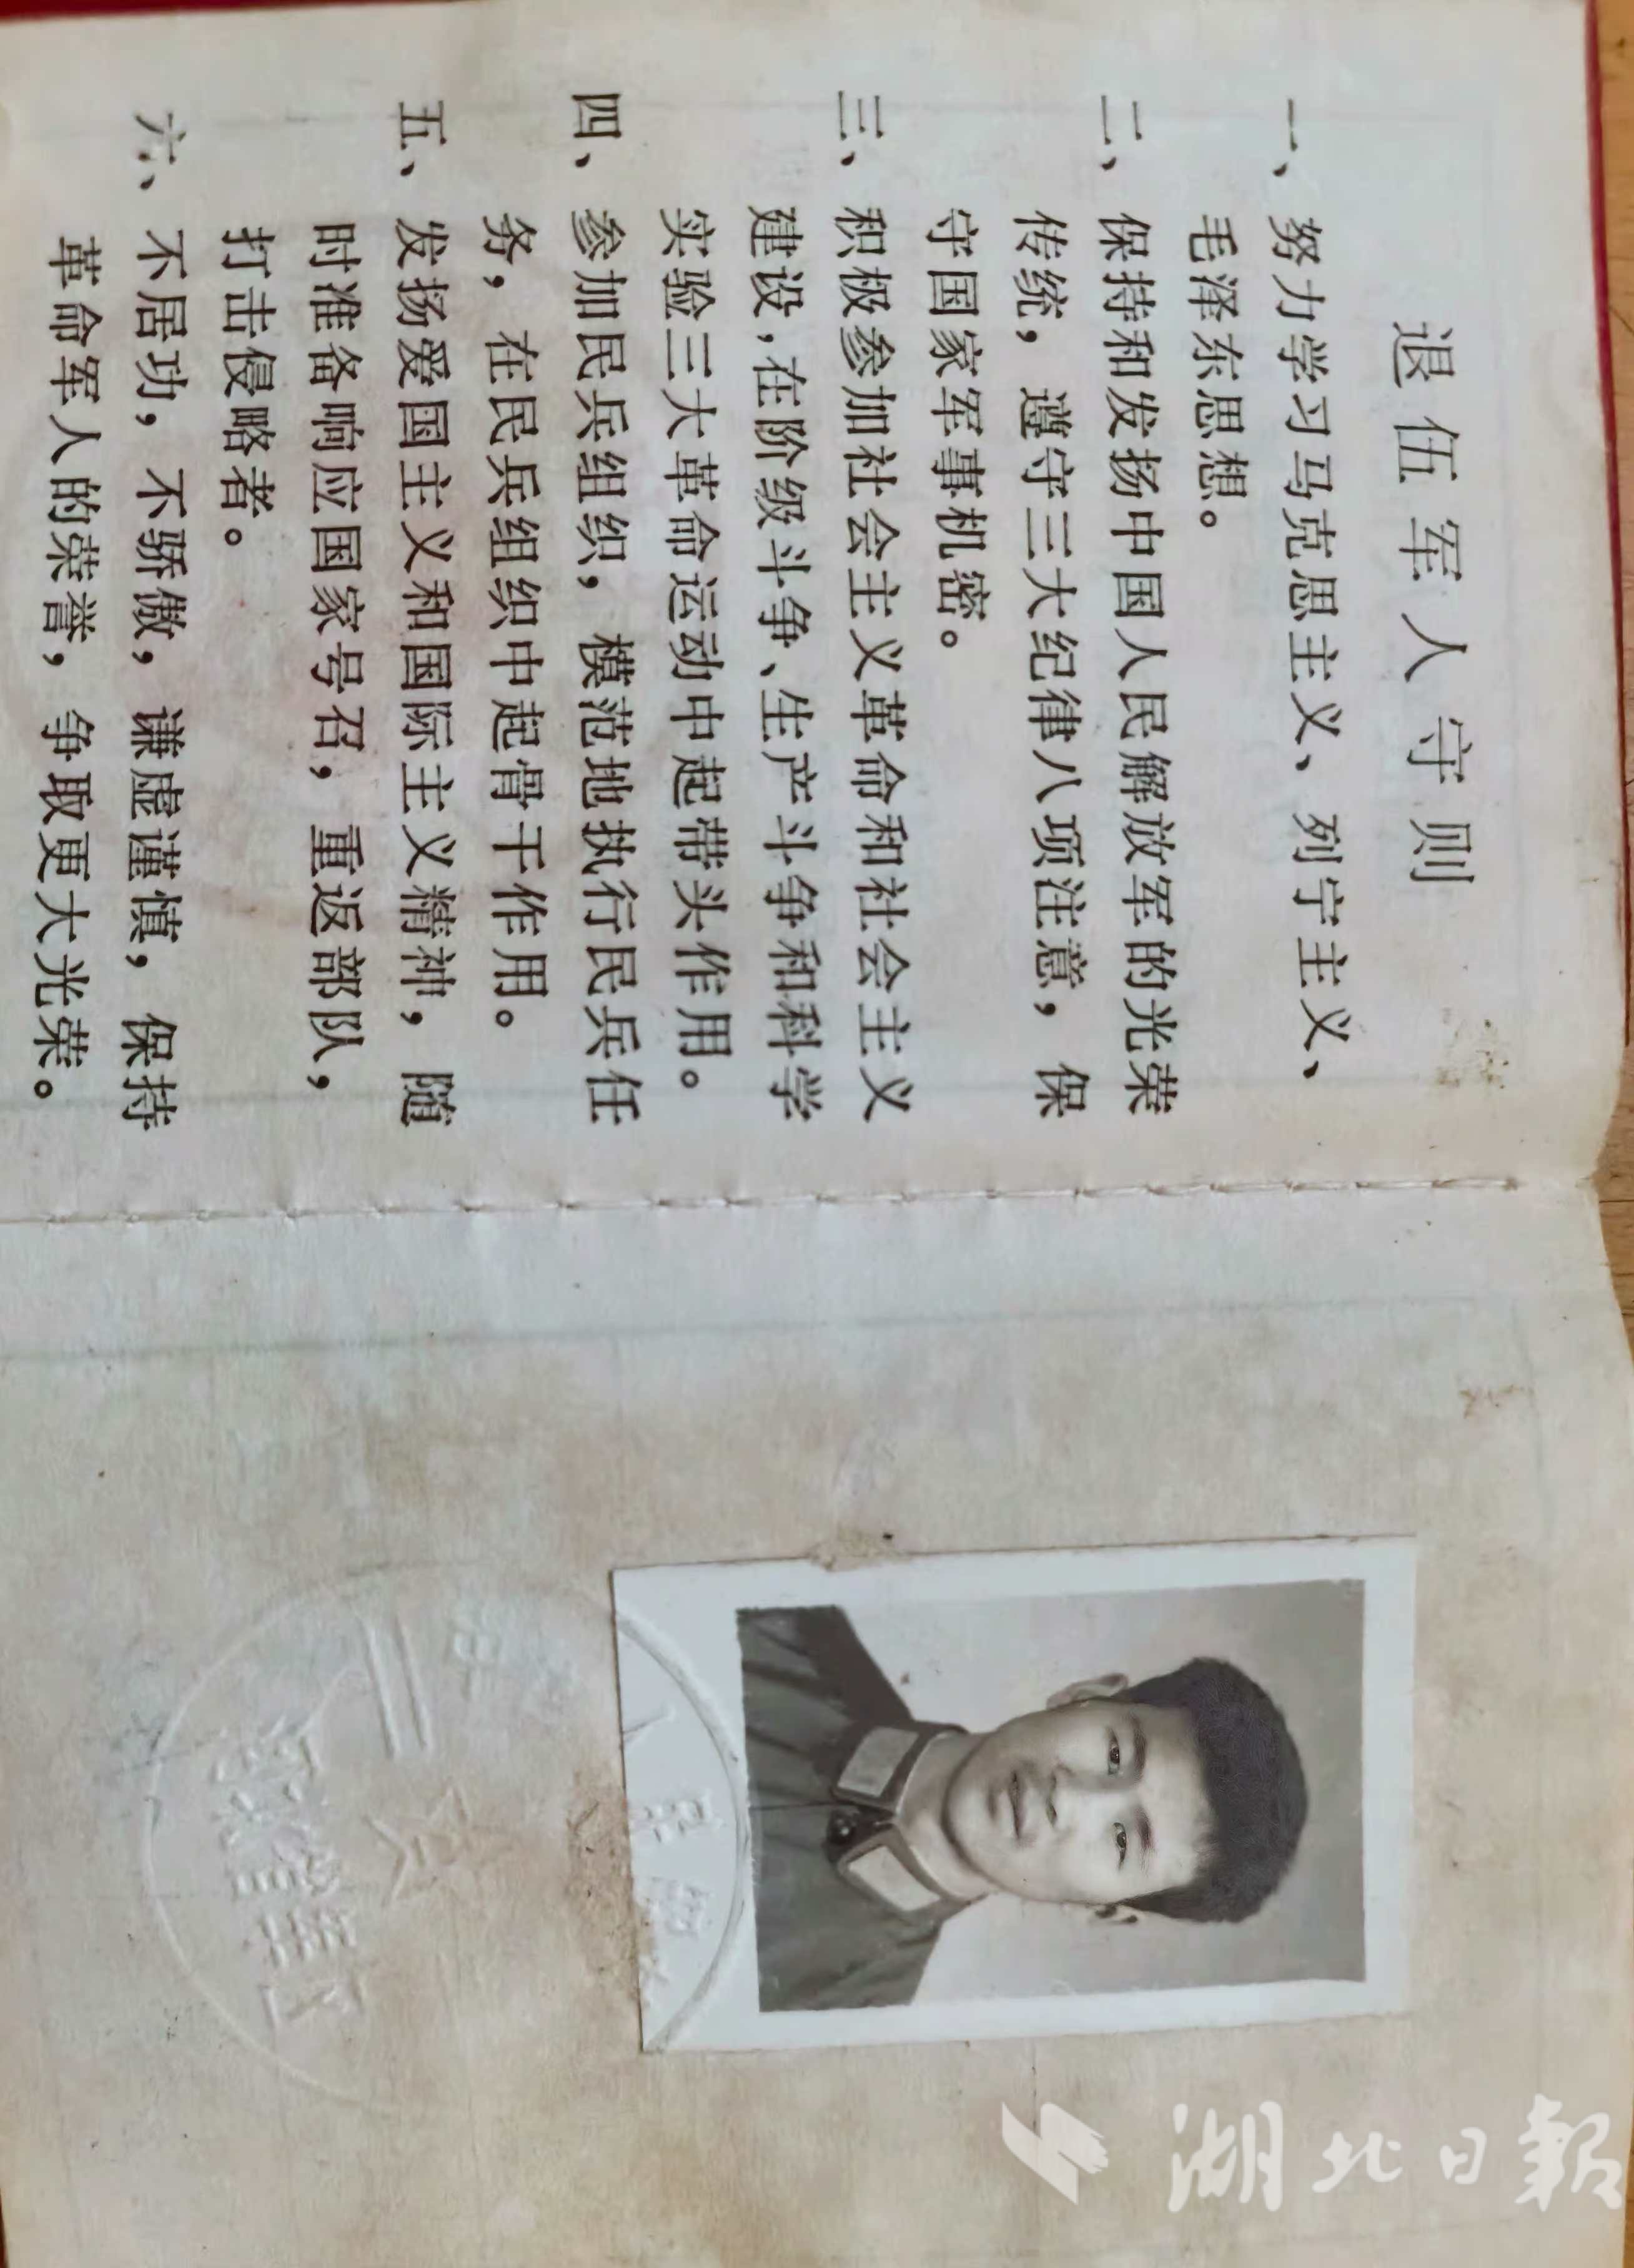 退伍军人守则
一、努力学习马克思主义、列宁主义、
毛泽东思想。
二、保持和发扬中国人民解放军的光荣
传统，遵守三大纪律八项注意，保
守国家军事机密。
三、积极参加社会主义革命和社会主义
建设，在阶级斗争、生产斗争和科学
实验三大革命运动中起带头作用。
四、参加民兵组织，模范地执行民兵任
务，在民兵组织中起骨干作用。
五、发扬爱国主义和国际主义精神，随
时准备响应国家号召，重返部队，
打击侵略者。
六、不居功，不骄傲，谦虚谨慎，保持
革命军人的荣誉，争取更大光荣。
湖北日報